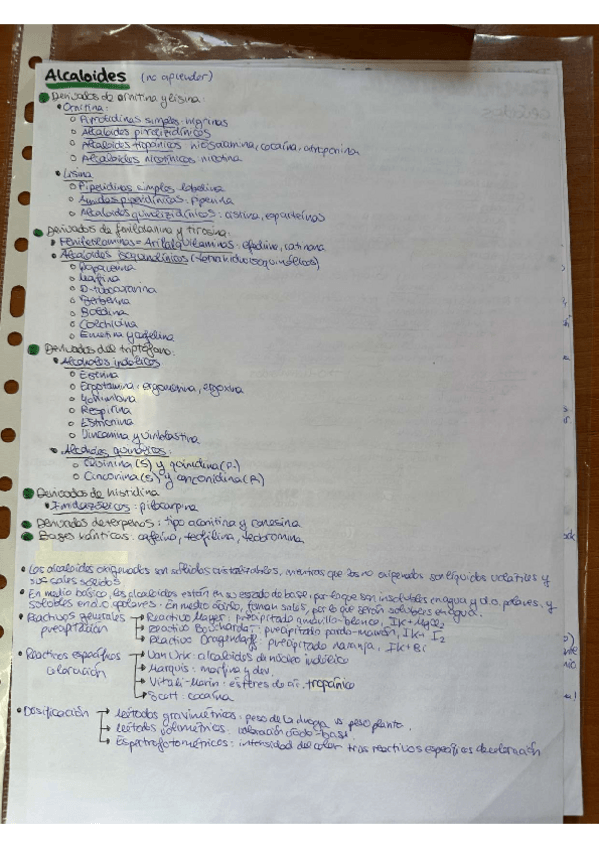 Alcaloides (no aprender)
Derivados de ornitina y lisina:
• Ornitina:
o Pirrolidinas simples: higrinas
o Alcaloides pirolizidínicos
o Alcaloides tropánicos: hiosciamina, cocaína, atropinina
o Alcaloides nicotínicos: nicotina
• Lisina
o Piperidinas simples: lobelina
o Amidas piperidínicas: piperina
o Alcaloides quinolizidínicos: citisina, esparteínas
Derivados de fenilalanina y tirosina:
• Feniletilaminas = Arilalquilaminas: efedrina, catinona
• Alcaloides isoquinoleínicos (tetrahidroisoquinoleicos)
o Papaverina
o Morfina
o D-tubocurarina
o Berberina
o Boldina
o Colchicina
o Emetina y cefelina
Derivados del triptófano:
• Alcaloides indólicos
o Eserina
o Ergotamina, ergo
o Yohimbina
o Reserpina
o Estricnina
o Vincamina y vinblastina
• Alcaloides quinoleicos:
o Quinina (S) y quinidina (R)
o Cinconina (S) y cinconidina (R)
Derivados de histidina
• Imidazólicos: pilocarpina
Derivados de terpenos: tipo aconitina y conesina
Bases xánticas: cafeína, teofilina, teobromina
• Los alcaloides oxigenados son sólidos cristalizables, mientras que los no oxigenados son líquidos volátiles y
sus sales sólidos
• En medio básico, los alcaloides están en su estado de base, por lo que son insolubles en agua y d.o. polares, y
solubles en d.o. apolares. En medio ácido, forman sales, por lo que serán solubles en agua.
• Reactivos generales → Reactivo Mayer: precipitado amarillo-blanco, IK + HgCl2
precipitación → Reactivo Bouchardat: precipitado pardo-marrón, IK + I2
→ Reactivo Dragendorff: precipitado naranja, IK + Bi
• Reactivos específicos → Van Urk: alcaloides de núcleo indólico
coloración → Marquis: morfina y dev.
→ Vitali-Morin: ésteres de ác. tropánico
→ Scott: cocaína
• Dosificación → Métodos gravimétricos: peso de la droga vs peso planta.
→ Métodos volumétricos: valoración ácido-base
→ Espectrofotométricos: intensidad del color tras reactivos específicos de coloración